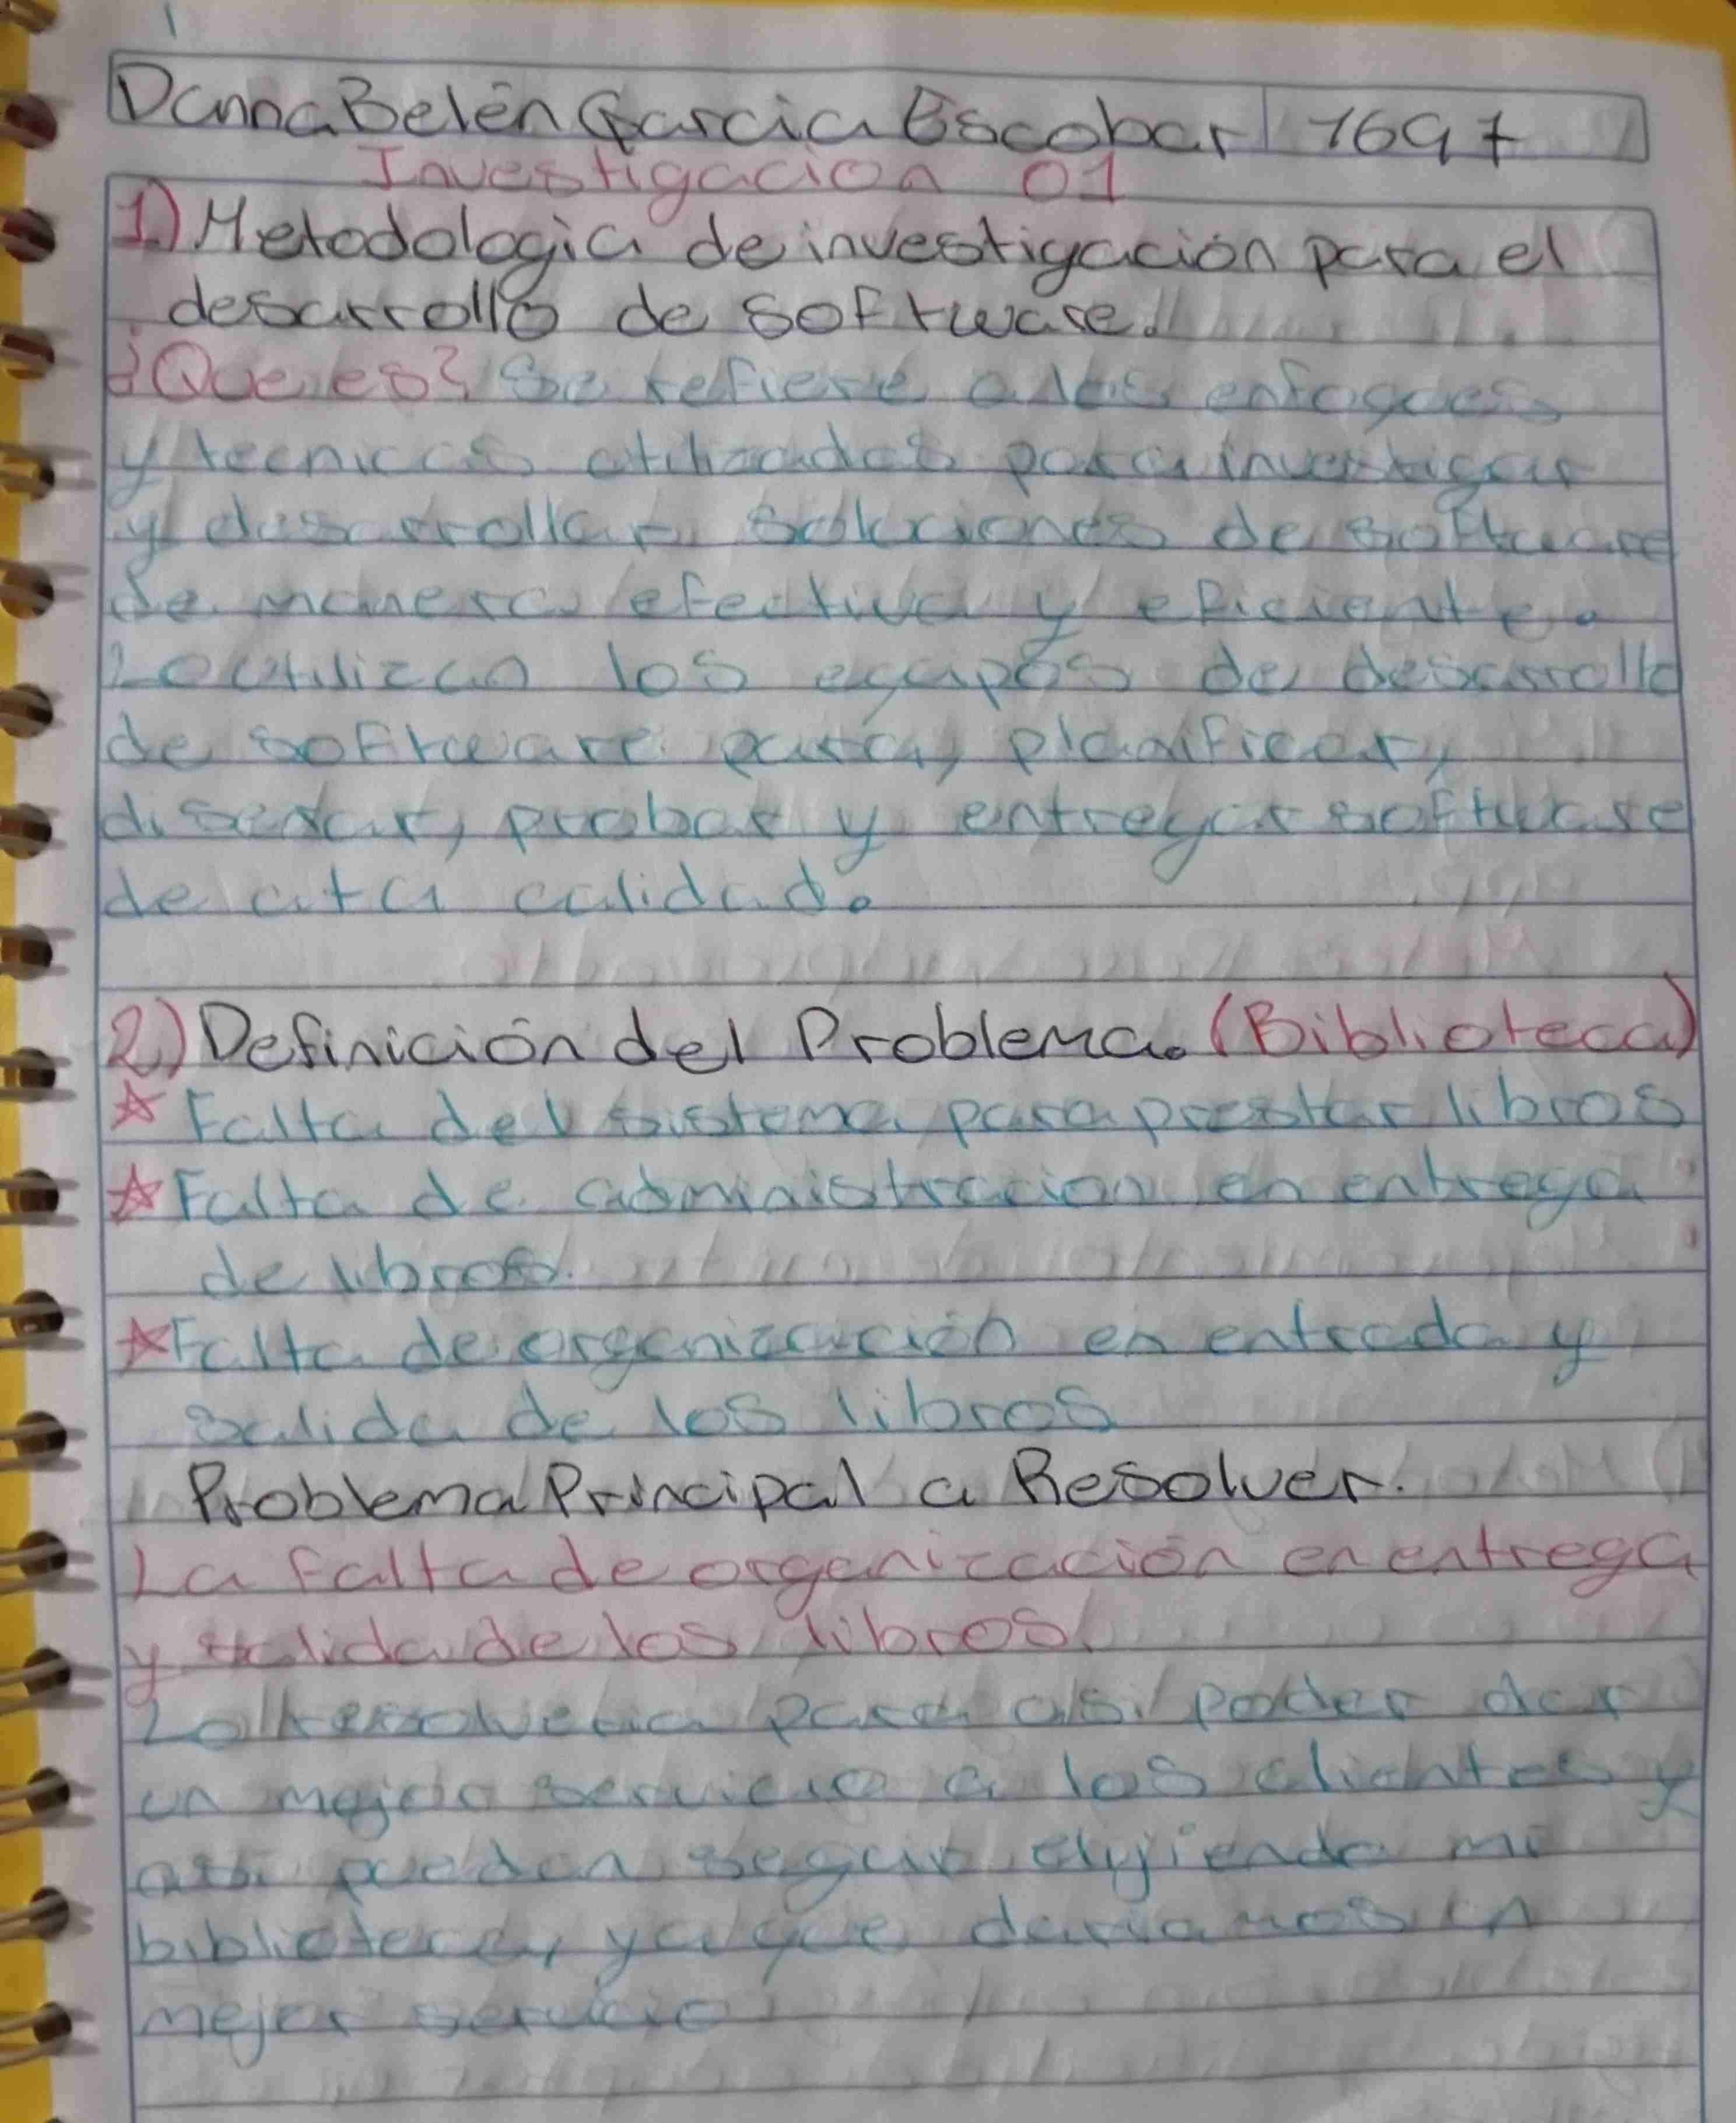 Danna Belén Garcia Escobar 1697
Investigacion 01
1.) Metodologia de investigación para el
desarrollo de software.
¿Que es? Se refiere a los enfoques
y tecnicas utilizados para investigar
y desarrollar soluciones de software
de manera efectiva y eficiente.
Lo utilizan los equipos de desarrollo
de software para, planificar,
diseñar, probar y entregar software
de alta calidad.
2.) Definición del Problema. (Biblioteca)
☆ Falta del sistema para prestar libros
☆ Falta de administracion en entrega
de libros.
☆ Falta de organización en entrada y
salida de los libros
Problema Principal a Resolver.
La falta de organización en entrega
y salida de los libros.
Lo resolveria para asi poder dar
un mejor servicio a los clientes y
asi puedan seguir elijiendo mi
biblioteca, ya que dariamos un
mejor servicio